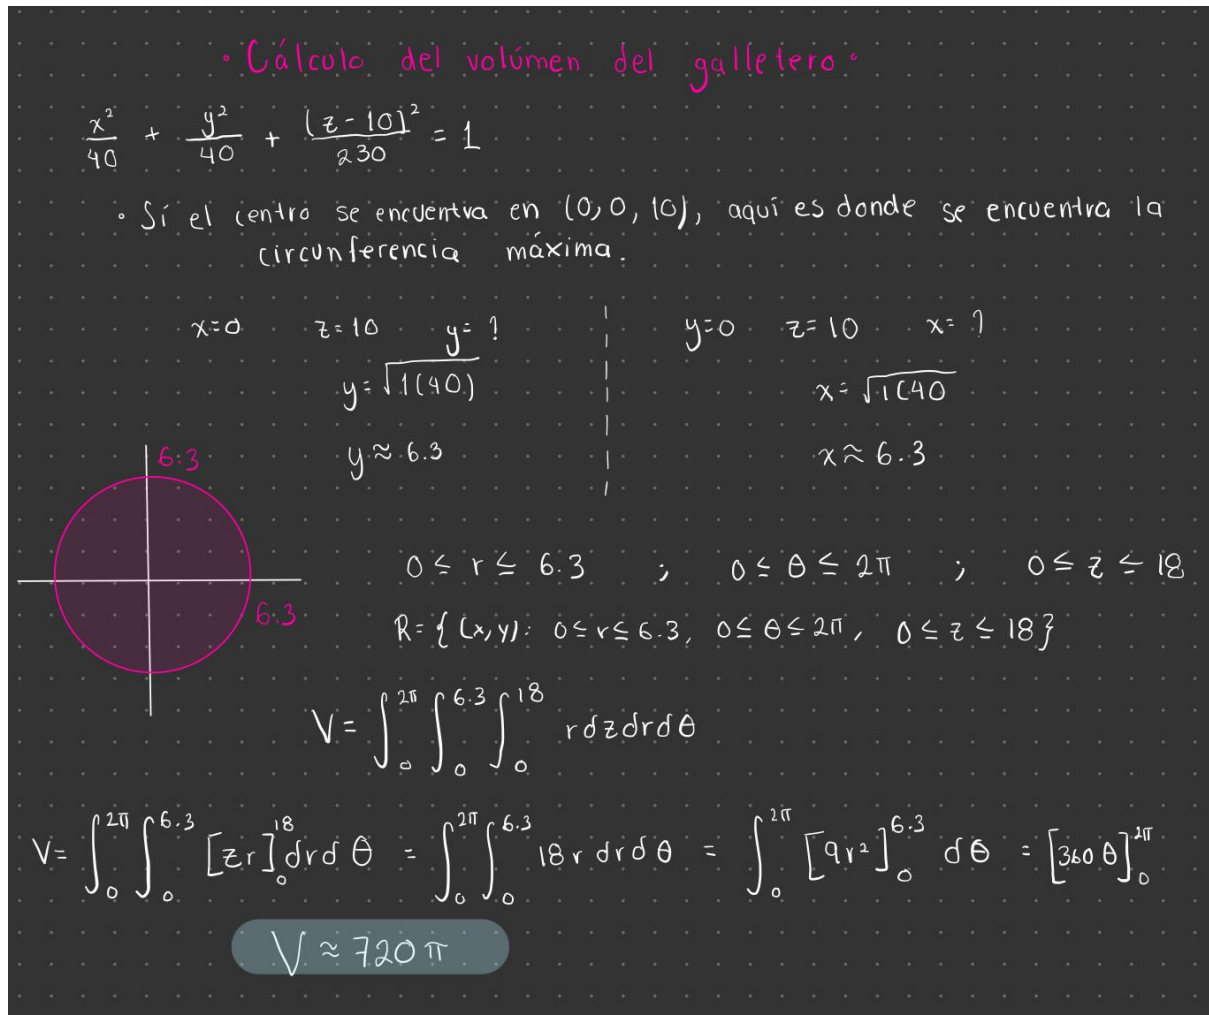 • Cálculo del volúmen del galletero •
x²/40 + y²/40 + (z-10)²/230 = 1
• Sí el centro se encuentra en (0,0,10), aquí es donde se encuentra la
circunferencia máxima.
x=0 z=10 y=?
y=√1(40)
y≈6.3
y=0 z=10 x=?
x=√1(40
x≈6.3
6.3
6.3
0≤r≤6.3 ; 0≤θ≤2π ; 0≤z≤18
R={(x,y): 0≤r≤6.3, 0≤θ≤2π, 0≤z≤18}
V=∫₀^2π ∫₀^6.3 ∫₀^18 rdzdrdθ
V=∫₀^2π ∫₀^6.3 [zr]₀^18 drdθ = ∫₀^2π ∫₀^6.3 18r drdθ = ∫₀^2π [9r²]₀^6.3 dθ = [360θ]₀^2π
V≈720π